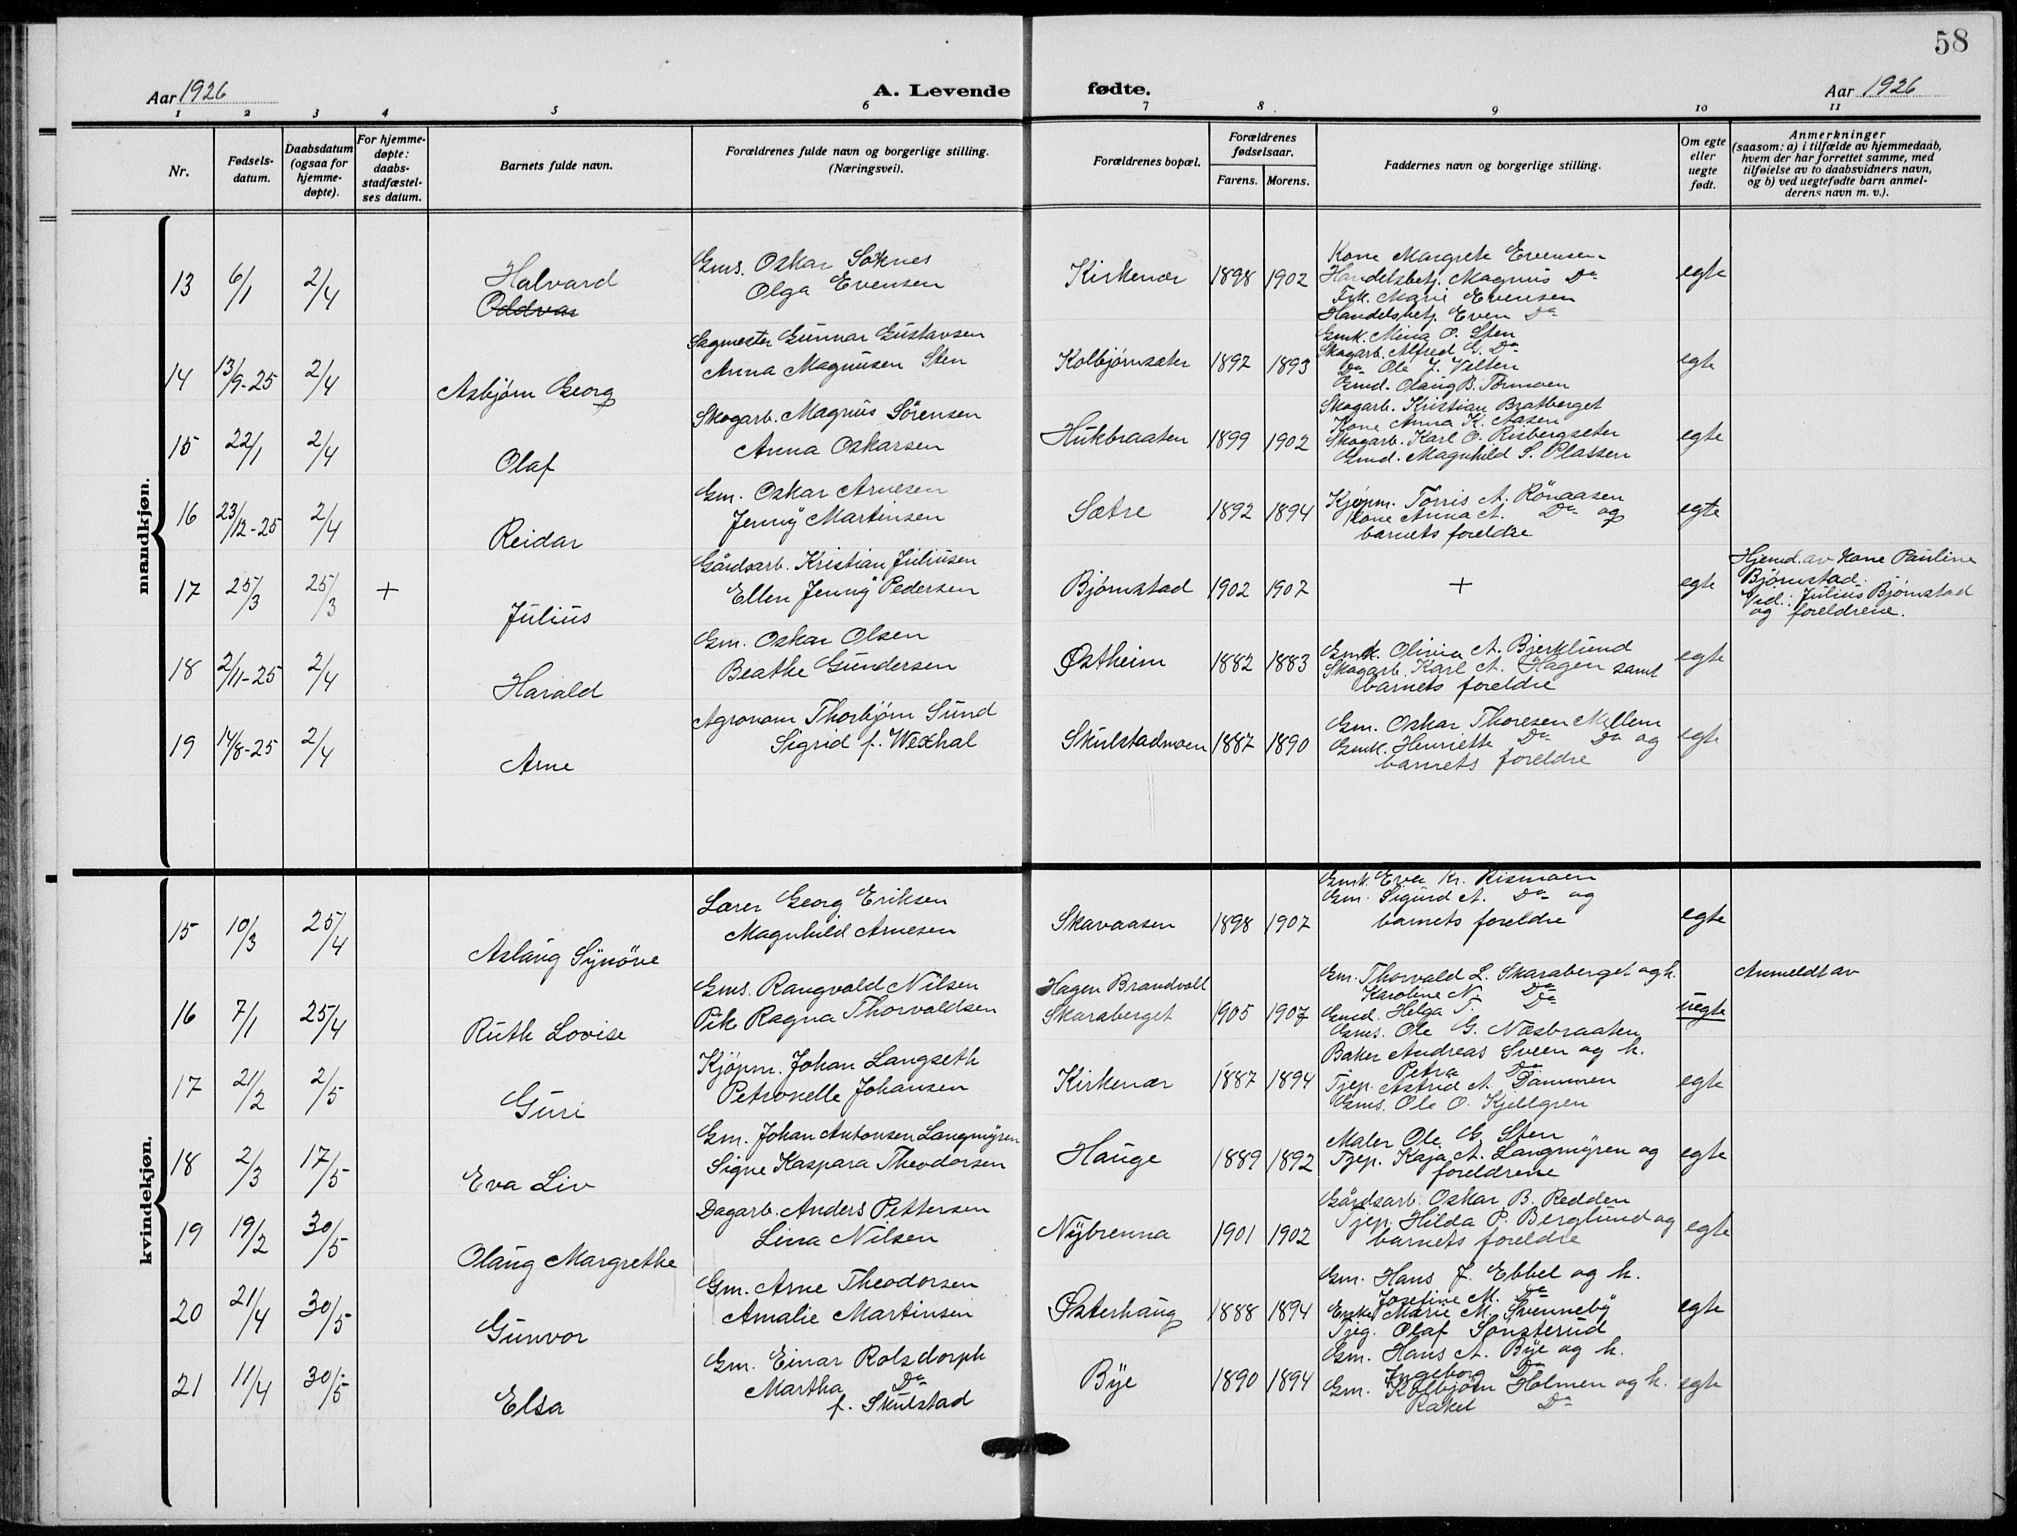 58
Aar 1926
A. Levende fødte.
Aar 1926
1 2 3 4 5 6 7 8 9 10 11
Nr.
Fødsels-
datum.
Daabsdatum
(ogsaa for
hjemme-
døpte).
For hjemme-
døpte:
daabs-
stadfæstel-
ses datum.
Barnets fulde navn.
Forældrenes fulde navn og borgerlige stilling.
(Næringsvei).
Forældrenes bopæl.
Forældrenes
fødselsaar.
Farens. Morens.
Faddernes navn og borgerlige stilling.
Om egte
eller
uegte
født.
Anmerkninger
(saasom: a) i tilfælde av hjemmedaab,
hvem der har forrettet samme, med
tilføielse av to daabsvidners navn,
og b) ved uegtefødte barn anmel-
derens navn m. v.).
mandkjøn.
13 6/1 2/4
Halvard
Oddvar
Gms. Oskar Soknes
Olga Evensen
Kirkenær 1898 1902
Kone Margrete Evensen
Handelsbetj. Magnus Do
Frk. Marie Evensen
Handelsbetj. Even Do
egte
14 13/9-25 2/4
Asbjørn Georg
Sagmester Gunnar Gustavsen
Anna Magnusen Sten
Kolbjørnsæter 1892 1893
Gmk. Mina O. Sten
Skogarb. Alfred G. Do
Do Ole J. Velten
Gmd. Olaug B. Tørmoen
egte
15 22/1 2/4
Olaf
Skogarb. Magnus Sörensen
Anna Oskarsen
Hukbraaten 1899 1902
Skogarb. Kristian Bratberget
Kone Anna K. Aasen
Skogarb. Karl O. Risbergseter
Gmd. Magnhild S. Plassen
egte
16 23/12-25 2/4
Reidar
Gm. Oskar Arnesen
Jenny Martinsen
Sætre 1892 1894
Kjøpm. Torris A. Rönaasen
Kone Anna A. Do og
barnets foreldre
egte
17 25/3 25/3 +
Julius
Gårdsarb. Kristian Juliusen
Ellen Jenny Pedersen
Bjørnstad 1902 1907
+
egte
Hjemd. av Kone Pauline
Bjørnstad.
Vid.: Julius Bjørnstad
og foreldrene.
18 2/11-25 2/4
Harald
Gm. Oskar Olsen
Beathe Gundersen
Østheim 1882 1883
Gmk. Olivia A. Bjerklund
Skogarb. Karl A. Hagen samt
barnets foreldre
egte
19 14/8-25 2/4
Arne
Agronom Thorbjørn Sund
Sigrid f. Wexhal
Skulstadmoen 1887 1890
Gm. Oskar Thoresen Mellem
Gmk. Henriette Do Do og
barnets foreldre
egte
kvindekjøn.
15 10/3 25/4
Aslaug Synöve
Lærer Georg Eriksen
Magnhild Arnesen
Skavaasen 1898 1907
Gmk. Eva Kr. Rismoen
Gm. Sigurd A. Do og
barnets foreldre
egte
16 7/1 25/4
Ruth Lovise
Gms. Rangvald Nilsen
Pik Ragna Thorvaldsen
Hagen Brandvall
Skaraberget 1905 1907
Gm. Thorvald L. Skaraberget og h.
Karoline N. Do
Gmd. Helga T. Do
Gms. Ole G. Næsbraaten
uegte
Anmeldt av
17 21/2 2/5
Guri
Kjöpm. Johan Langseth
Petronelle Johansen
Kirkenær 1887 1894
Baker Andreas Sveen og h.
Petra Do
Tjep. Astrid A. Dammen
Gms. Ole O. Kjellgren
egte
18 2/3 17/5
Eva Liv
Gm. Johan Antonsen Langmyren
Signe Kaspara Theodorsen
Hauge 1889 1892
Maler Ole G. Sten
Tjep. Kaja A. Langmyren og
foreldrene
egte
19 19/2 30/5
Olaug Margrethe
Dagarb. Anders Pettersen
Lina Nilsen
Nybrenna 1901 1902
Gårdsarb. Oskar B. Redden
Tjep. Hilda P. Berglund og
barnets foreldre
egte
20 21/4 30/5
Gunvor
Gm. Arne Theodorsen
Amalie Martinsen
Østerhaug 1888 1894
Gm. Hans J. Ebbel og h.
Josefine M. Do
Enke Marie M. Svenneby
Tjeg. Olaf Sönsterud
egte
21 11/4 30/5
Elsa
Gm. Einar Rolsdorph
Martha Do
f. Skulstad
Bye 1890 1894
Gm. Hans A. Bye og h.
Ingeborg Do
Gm. Kolbjørn Holmen og h.
Rakel Do
egte